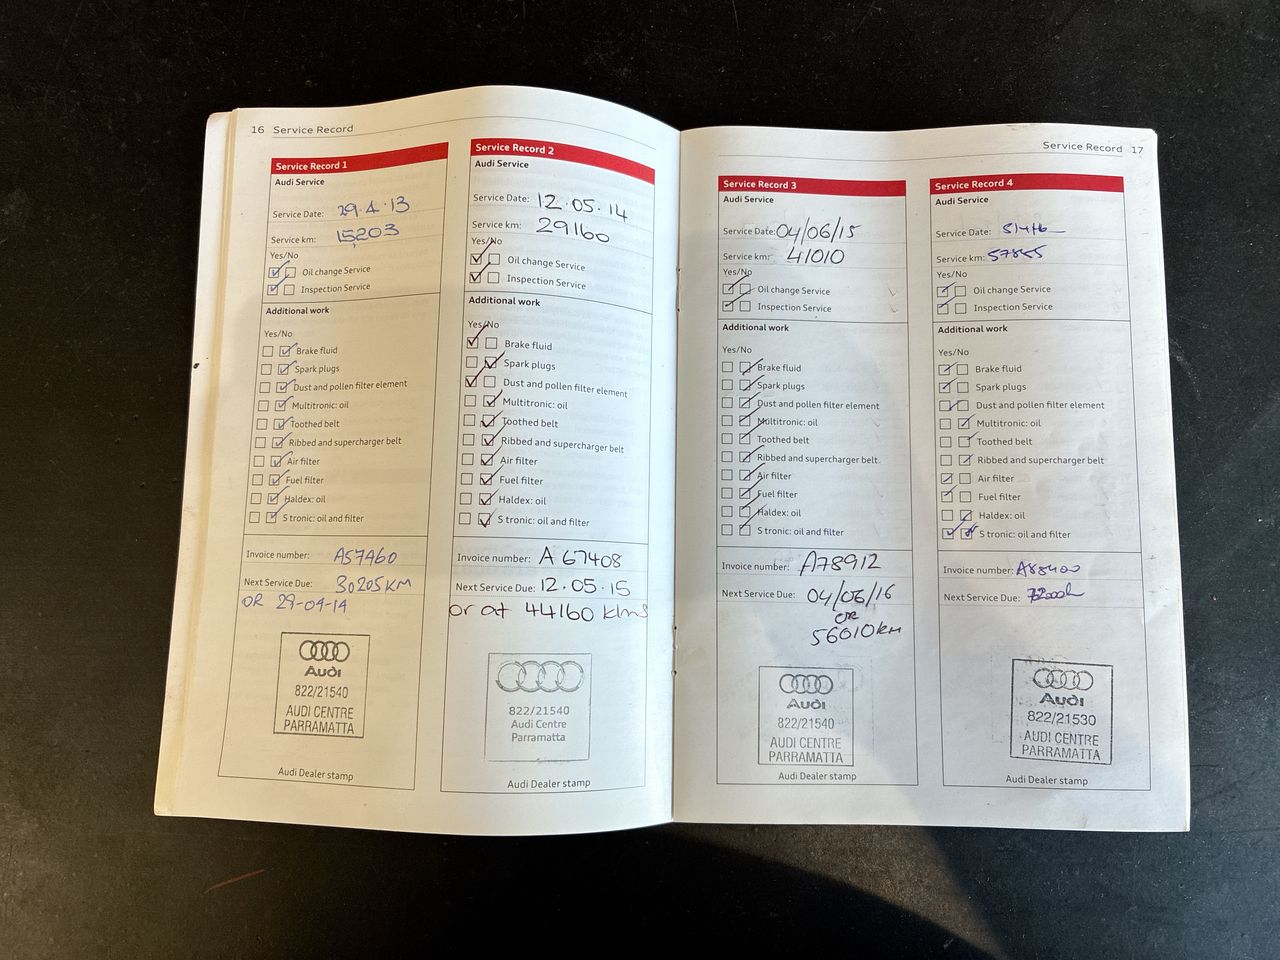 16 Service Record
Service Record 1
Audi Service
Service Date: 29.4.13
Service km: 15203
Yes/No
Oil change Service
Inspection Service
Additional work
Yes/No
Brake fluid
Spark plugs
Dust and pollen filter element
Multitronic: oil
Toothed belt
Ribbed and supercharger belt
Air filter
Fuel filter
Haldex: oil
S tronic: oil and filter
Invoice number: A57460
Next Service Due: 30205KM
OR 29-04-14
Audi
822/21540
AUDI CENTRE
PARRAMATTA
Audi Dealer stamp
Service Record 2
Audi Service
Service Date: 12.05.14
Service km: 29160
Yes/No
Oil change Service
Inspection Service
Additional work
Yes/No
Brake fluid
Spark plugs
Dust and pollen filter element
Multitronic: oil
Toothed belt
Ribbed and supercharger belt
Air filter
Fuel filter
Haldex: oil
S tronic: oil and filter
Invoice number: A 67408
Next Service Due: 12.05.15
or at 44160 klms
822/21540
Audi Centre
Parramatta
Audi Dealer stamp
Service Record 17
Service Record 3
Audi Service
Service Date: 04/06/15
Service km: 41010
Yes/No
Oil change Service
Inspection Service
Additional work
Yes/No
Brake fluid
Spark plugs
Dust and pollen filter element
Multitronic: oil
Toothed belt
Ribbed and supercharger belt
Air filter
Fuel filter
Haldex: oil
S tronic: oil and filter
Invoice number: A78912
Next Service Due: 04/06/16
OR
56010km
Audi
822/21540
AUDI CENTRE
PARRAMATTA
Audi Dealer stamp
Service Record 4
Audi Service
Service Date:
Service km: 57855
Yes/No
Oil change Service
Inspection Service
Additional work
Yes/No
Brake fluid
Spark plugs
Dust and pollen filter element
Multitronic: oil
Toothed belt
Ribbed and supercharger belt
Air filter
Fuel filter
Haldex: oil
S tronic: oil and filter
Invoice number: A88400
Next Service Due:
Audi
822/21530
AUDI CENTRE
PARRAMATTA
Audi Dealer stamp